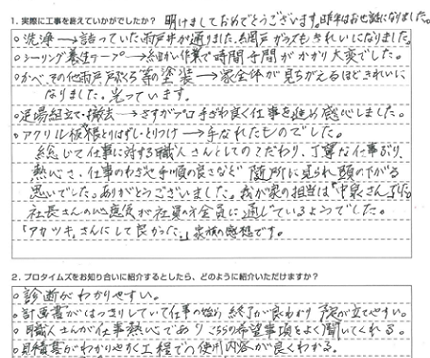 1. 実際に工事を終えていかがでしたか? 明けましておめでとうございます。昨年はお世話になりました。
○洗浄→詰っていた雨戸井が通りました。網戸ガラスもきれいになりました。
○シーリング養生テープ→細かい作業で時間手間がかかり大変でした。
○かべ、その他雨戸戸ぶくろ等の塗装→家全体が見ちがえるほどきれいに
なりました。光っています。
○足場組立て・撤去→さすがプロ手ぎわ良く仕事を進め感心しました。
○アクリル板とりはずし、とりつけ→手なれたものでした。
総じて仕事に対する職人さんとしてのこだわり、丁寧な仕事ぶり、
熱心さ、仕事のわざや手順の良さなど随所に見られ頭の下がる
思いでした。ありがとうございました。我が家の担当は「中泉さん」
社長さんの心意気が社員の方全員に通じているようでした。
「アカツキさんにして良かった。」家族の感想です。
2. プロタイムズをお知り合いに紹介するとしたら、どのように紹介いただけますか?
○診断がわかりやすい。
○計画書がはっきりしていて仕事の始め終了が良くわかり予定が立てやすい。
○職人さんが仕事熱心でありこちらの希望事項をよく聞いてくれる。
○見積書がわかりやすく工程での使用内容が良くわかる。